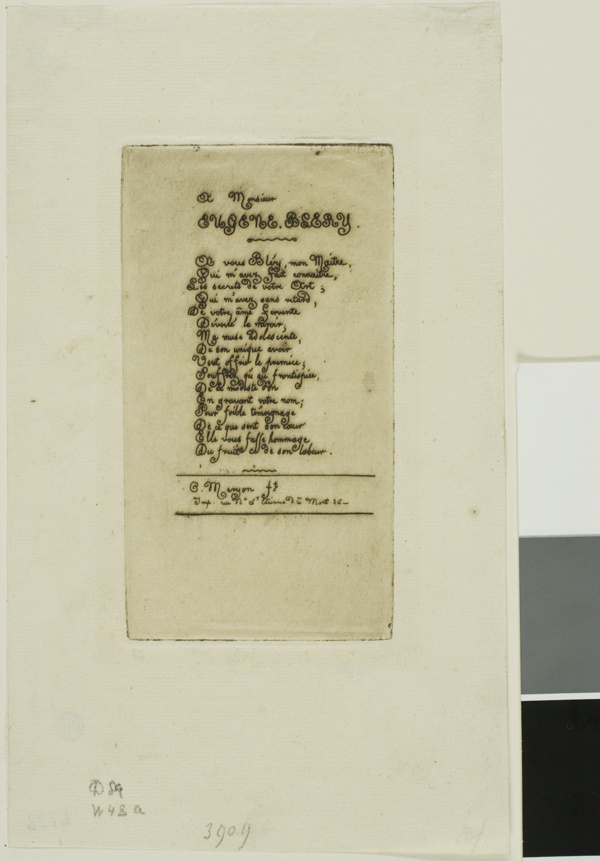 A Monsieur
EUGENE. BLERY.
A vous Bléry, mon Maître,
Qui m'avez fait connaître,
Les secrets de votre Art;
Qui m'avez sans retard,
De votre âme fervente
Dévoilé le miroir;
Ma muse adolescente,
De son unique avoir
Vient offrir le premice;
Souffrez qu'au frontispice,
De ce modeste don
En gravant votre nom;
Pour foible témoignage
De ce que sent son cœur
Elle vous fasse hommage
Du fruit de son labeur.
C. Meryon ft
Imp. rue Ne St Etienne du Mont 26
D 89
W 48 a
3909